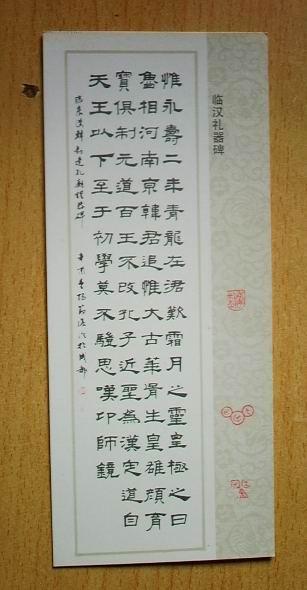 临汉礼器碑
惟永壽二年青龍在涒歎霜月之靈皇極之日
魯相河南京韓君追惟大古華胥生皇雄顏育
寶俱制元道百王不改孔子近聖為漢定道自
天王以下至于初學莫不驥思嘆卬師鏡